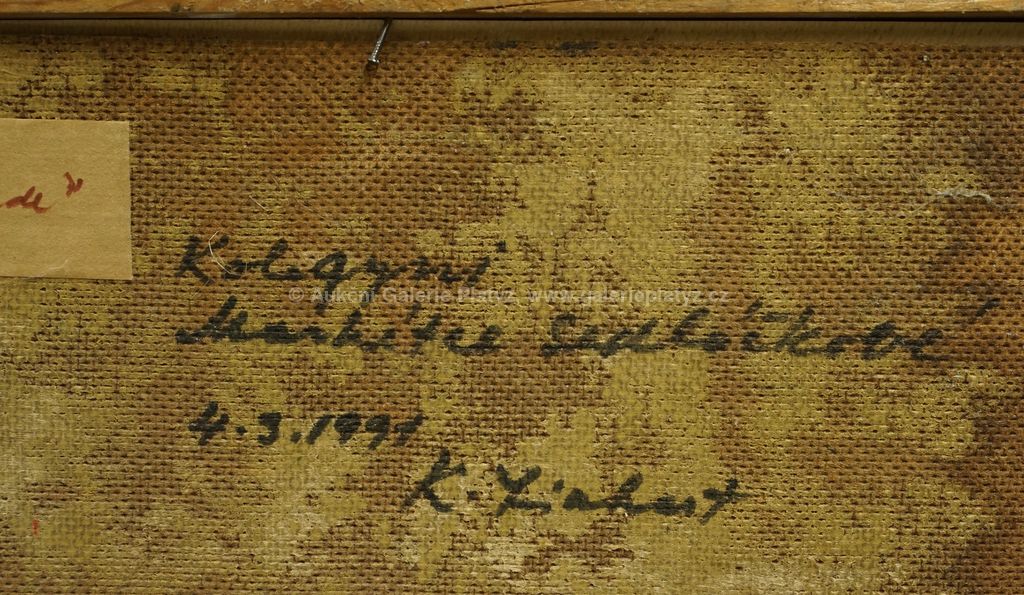 de"
Kolegyni
© Aukční Galerie Platýz, www.galerieplatyz.cz
Markétce Sedláčkové
4.3.1991
K.